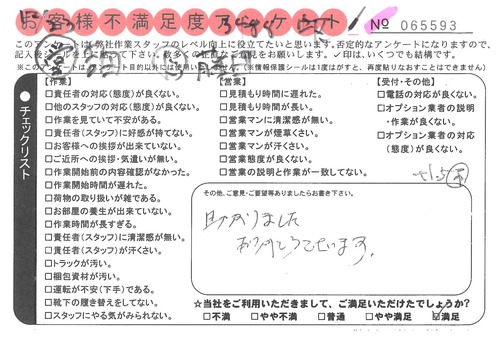 お客様不満足度アンケート
No 065593
このアンケートは弊社作業スタッフのレベル向上に役立てたいと思います。否定的なアンケートになりますので、
チェックリスト
【作業】
□責任者の対応(態度)が良くない。
□他のスタッフの対応(態度)が良くない。
□作業を見ていて不安がある。
□責任者(スタッフ)に好感が持てない。
□お客様への挨拶が出来ていない。
□ご近所への挨拶・気遣いが無い。
□作業開始前の内容確認がなかった。
□作業開始時間が遅れた。
□荷物の取り扱いが雑である。
□お部屋の養生が出来ていない。
□作業時間が長すぎる。
□責任者(スタッフ)に清潔感が無い。
□責任者(スタッフ)が汗くさい。
□トラックが汚い。
□梱包資材が汚い。
□運転が不安(下手)である。
□靴下の履き替えをしてない。
□スタッフにやる気がみられない。
【営業】
□見積もり時間に遅れた。
□見積もり時間が長い。
□営業マンに清潔感が無い。
□営業マンが煙草くさい。
□営業マンが汗くさい。
□営業態度が良くない。
□営業の説明と作業が一致してない。
【受付・その他】
□電話の対応が良くない。
□オプション業者の説明
・作業が良くない。
□オプション業者の対応
(態度)が良くない。
その他、ご意見・ご要望等ありましたらお書き下さい。
助かりました
ありがとうございます。
☆当社をご利用いただきまして、ご満足いただけたでしょうか?
□不満 □やや不満 □普通 □やや満足 ☑満足